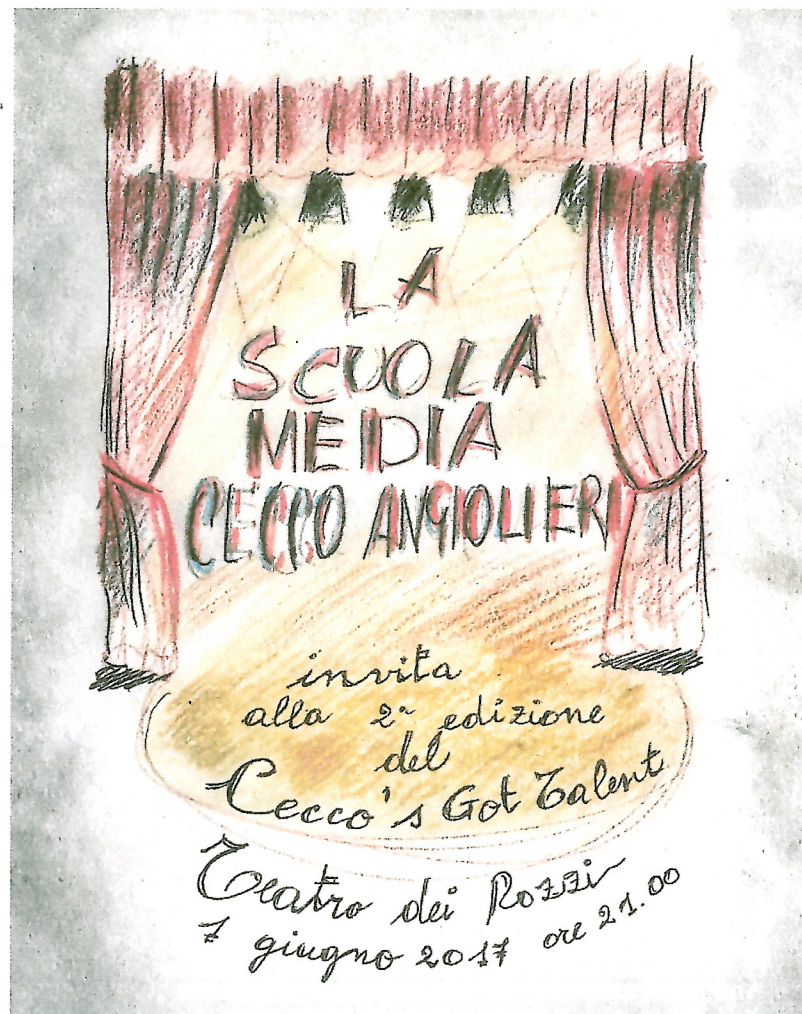 LA
SCUOLA
MEDIA
CECCO ANGIOLIERI
invita
alla 2ª edizione
del
Cecco's Got Talent
Teatro dei Rozzi
7 giugno 2017 ore 21.00